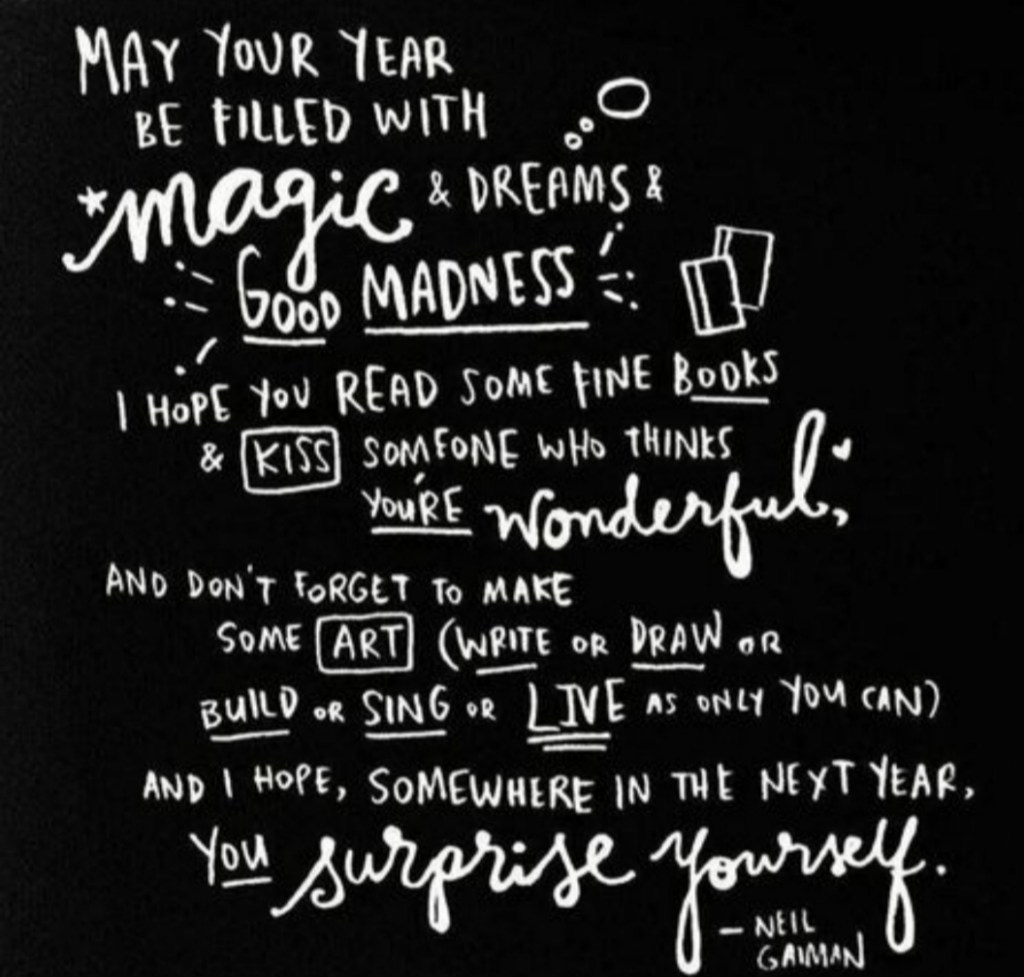 MAY YOUR YEAR
BE FILLED WITH
*magic & DREAMS &
GOOD MADNESS
I HOPE YOU READ SOME FINE BOOKS
& KISS SOMEONE WHO THINKS
YOU'RE wonderful,
AND DON'T FORGET TO MAKE
SOME ART (WRITE OR DRAW OR
BUILD OR SING OR LIVE AS ONLY YOU CAN)
AND I HOPE, SOMEWHERE IN THE NEXT YEAR,
YOU surprise yourself.
— NEIL
GAIMAN